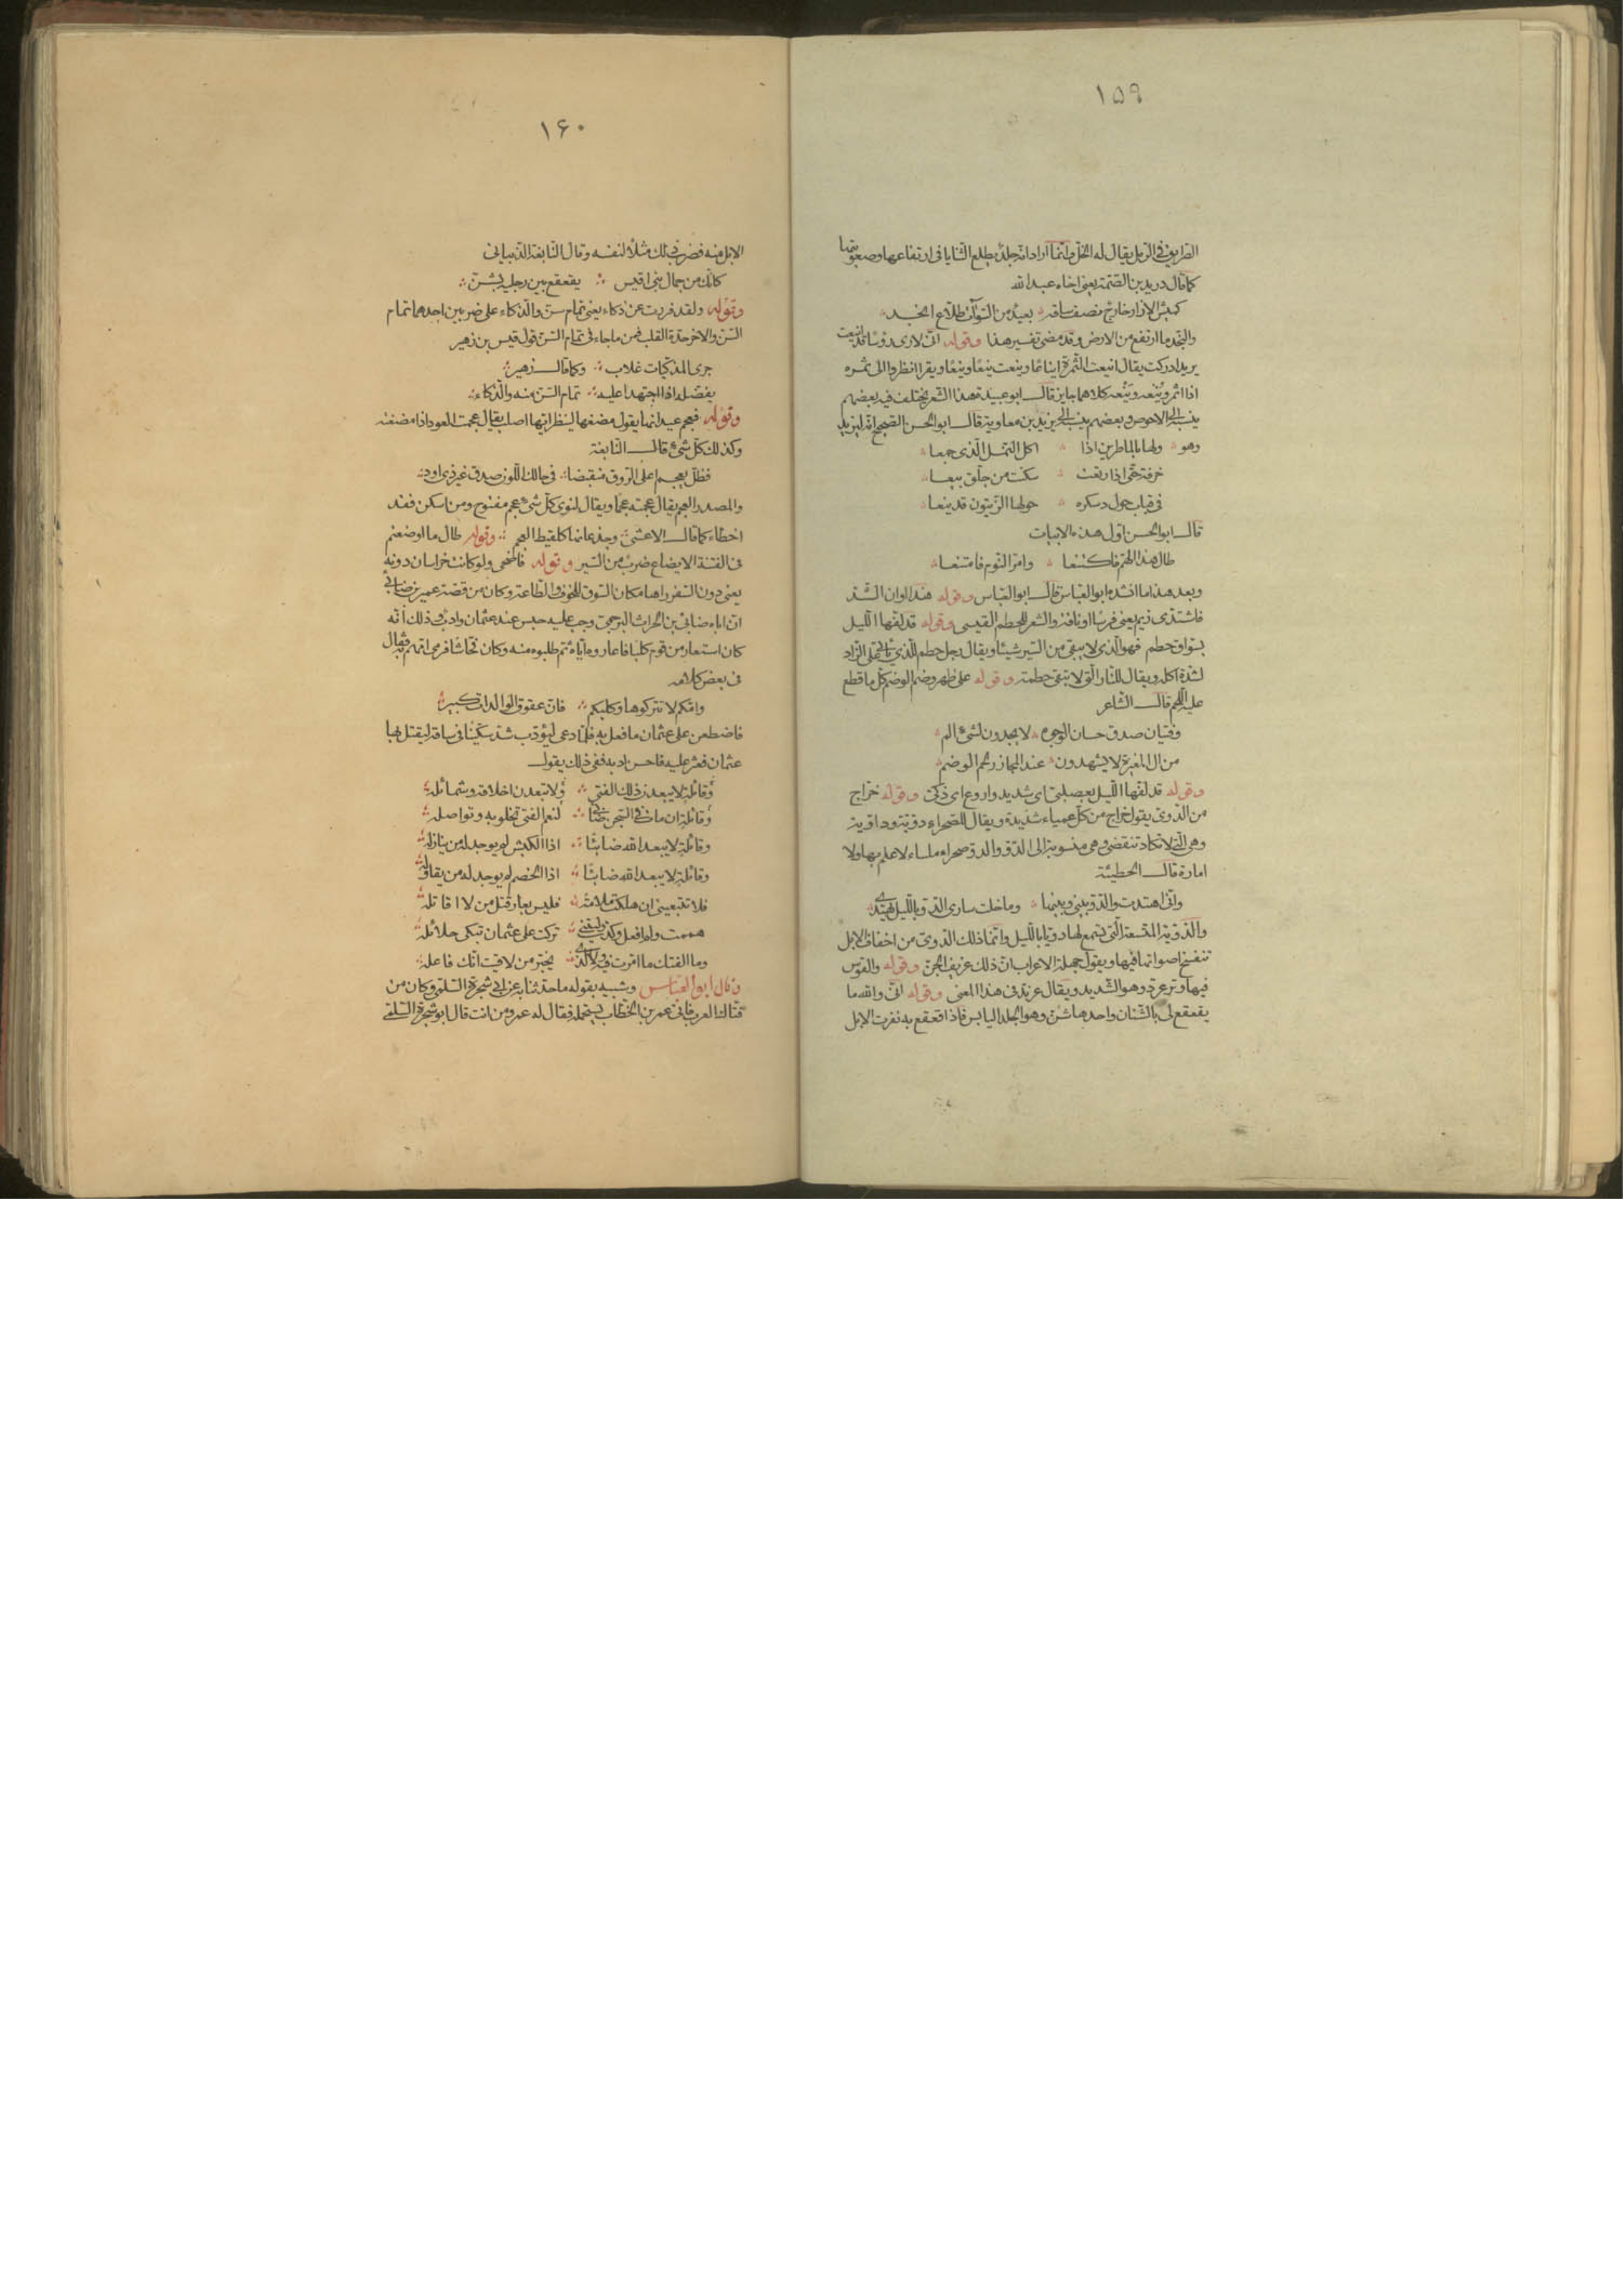 ١٥٩
الطريق في الرمل يقال له الخل وانما اراد انه جلد يطلع الثنايا في ارتفاعها وصعوبتها
كما قال دريد بن الصمة يعني اخاه عبد الله
كميش الازار خارج نصف ساقه بعيد من السوآت طلاع انجد
والنجد ما ارتفع من الارض وقد مضى تفسير هذا وقوله اني لارى رؤسا قد اينعت
يريد ادركت يقال اينعت الثمرة ايناعا وينعت ينعا وينعا ويقرا انظروا الى ثمره
اذا اثمر وينعه وينعه كلاهما جايز قال ابو عبيدة هذا الشعر يختلف فيه بعضهم
ينسبه الى الاحوص وبعضهم ينسبه الى يزيد بن معاوية قال ابو الحسن الصحيح انه ليزيد
وهو ولها بالماطرين اذا اكل النمل الذي جمعا
خرفة حتى اذا ربعت سكنت من جلق بيعا
في قباب حول دسكره حولها الزيتون قد ينعا
قال ابو الحسن اول هذه الابيات
طال هذا الهم فاكتنعا وامر النوم فامتنعا
وبعد هذا ما انشده ابو العباس قال ابو العباس وقوله هذا اوان الشد
فاشتدي زيم يعني فرسا او ناقة والشعر للحطم القيسي وقوله قد لفها الليل
بسواق حطم فهو الذي لا يبقي من السير شيئا ويقال رجل حطم للذي ياتي على الزاد
لشدة اكله ويقال للنار التي لا تبقي حطمة وقوله على ظهر وضم الوضم كل ما قطع
عليه اللحم قال الشاعر
وفتيان صدق حسان الوجوه لا يجدون لشيء الم
من ال المغيرة لا يشهدون عند المجازر لحم الوضم
وقوله قد لفها الليل بعصلبي اي شديد واروع اي ذكي وقوله خراج
من الدوي يقول خراج من كل عمياء شديدة ويقال للصحراء دوية وداوية
وهي التي لا تكاد تنقضي وهي منسوبة الى الدو والدو صحراء ملساء لا علم بها ولا
امارة قال الحطيئة
واني اهتدت والدو بيني وبينها وما خلت ساري الدو بالليل يهتدي
والدوية المتسعة التي يسمع لها دويا بالليل وانما ذلك الدوي من اخفاف الابل
تنفسخ اصواتها فيها ويقول جهلة الاعراب ان ذلك عزيف الجن وقوله والقوس
فيها وتر عرد وهو الشديد ويقال عرند في هذا المعنى وقوله اني والله ما
يقعقع لي بالشنان واحدها شن وهو الجلد اليابس فاذا قعقع به نفرت الابل
١۶٠
الابل منه فضرب ذلك مثلا لنفسه وقال النابغة الذبياني
كانك من جمال بني اقيش يقعقع بين رجليه بشن
وقوله ولقد فررت عن ذكاء يعني تمام سن والذكاء على ضربين احدهما تمام
السن والاخر حدة القلب فمن ما جاء في تمام السن قول قيس بن زهير
جرى المذكيات غلاب وكما قال زهير
يفضله اذا اجتهدا عليه تمام السن منه والذكاء
وقوله فعجم عيدانها يقول مضغها لينظر ايها اصلب يقال عجمت العود اذا مضغته
وكذلك كل شيء قال النابغة
فظل يعجم اعلى الروق منقبضا في حالك اللون صدق غير ذي اود
والمصدر العجم يقال عجمته عجما ويقال لنوى كل شيء عجم مفتوح ومن اسكن فقد
اخطاء كما قال الاعشى وجذعانها كلقيط العجم وقوله طال ما اوضعتم
في الفتنة الايضاع ضرب من السير وقوله فاضحى ولو كانت خراسان دونه
يعني دون السفر راها مكان السوق للخوف والطاعة وكان من قصة عمير بن ضابئ
ان اباه ضابئ بن الحارث البرجمي وجب عليه حبس عند عثمان وادب وذلك انه
كان استعار من قوم كلبا فاعاروه اياه ثم طلبوه منه وكان فحاشا فرمى امهم به فقال
في بعض كلامه
وامكم لا تتركوها وكلبكم فان عقوق الوالدات كبير
فاضطغن على عثمان ما فعل به فلما دعي ليؤدب شد سكينا في ساقه ليقتل بها
عثمان فعثر عليه فاحسن ادبه ففي ذلك يقول
وقائلة لا يبعدن ذلك الفتى ولا تبعدن اخلاقه وشمائله
وقائلة ان مات في السجن ضابئ لنعم الفتى تخلو به وتواصله
وقائلة لا يبعد الله ضابئا اذا الكبش لم يوجد له من ينازله
وقائلة لا يبعد الله ضابئا اذا الخصم لم يوجد له من يقاوله
فلا تتبعيني ان هلكت ملامة فليس بعار قتل من لا اقاتله
هممت ولم افعل وكدت وليتني تركت على عثمان تبكي حلائله
وما الفتك ما امرت فيه ولا الذي يخبر من لاقيت انك فاعله
وقال ابو العباس وشبيه بقوله ما حدثنا به عن ابي شجرة السلمي وكان من
فتاك العرب فاتى عمر بن الخطاب يستحمله فقال له عمر ومن انت قال ابو شجرة السلمي